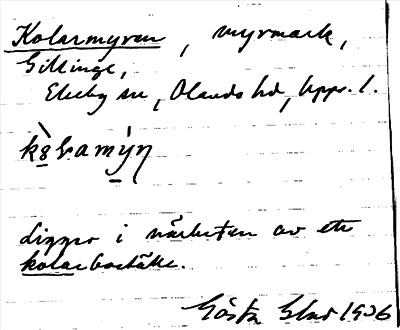 Kolarmyren, myrmark,
Gillinge,
Ekeby sn, Olands hd, Upps. l.
kòlramýṇ
Ligger i närheten av ett
kolarboställe.
Gösta 1936